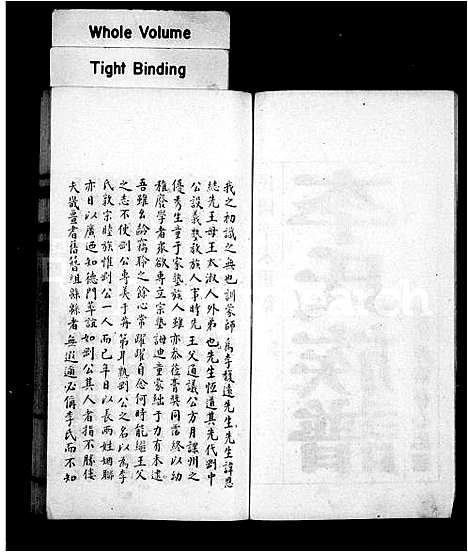 Whole Volume
Tight Binding
我之初識之無也訓蒙師為李馥遠先生先生諱恩
總先王母王太淑人外弟也先生恆道其先代劉中
公設義塾教族人事時先王父通議公方月課州之
優秀生童于家塾族人雖亦恭莅膏獎同霑終以幼
稚廢學者眾欲專立宗塾誨迪童蒙絀于力有未逮
吾雖幺齡竊聆之餘心常躍躍自念何時能繼王父
之志不使劉公專美于前第耳熟劉公之名以為李
氏敦宗睦族惟劉公一人而已年日以長兩姓姻聯
亦日以廣迺知德門羣誼如劉公其人者指不勝僂
天畿豈耆舊簪組緜緜者無遐邇必偁李氏而不知